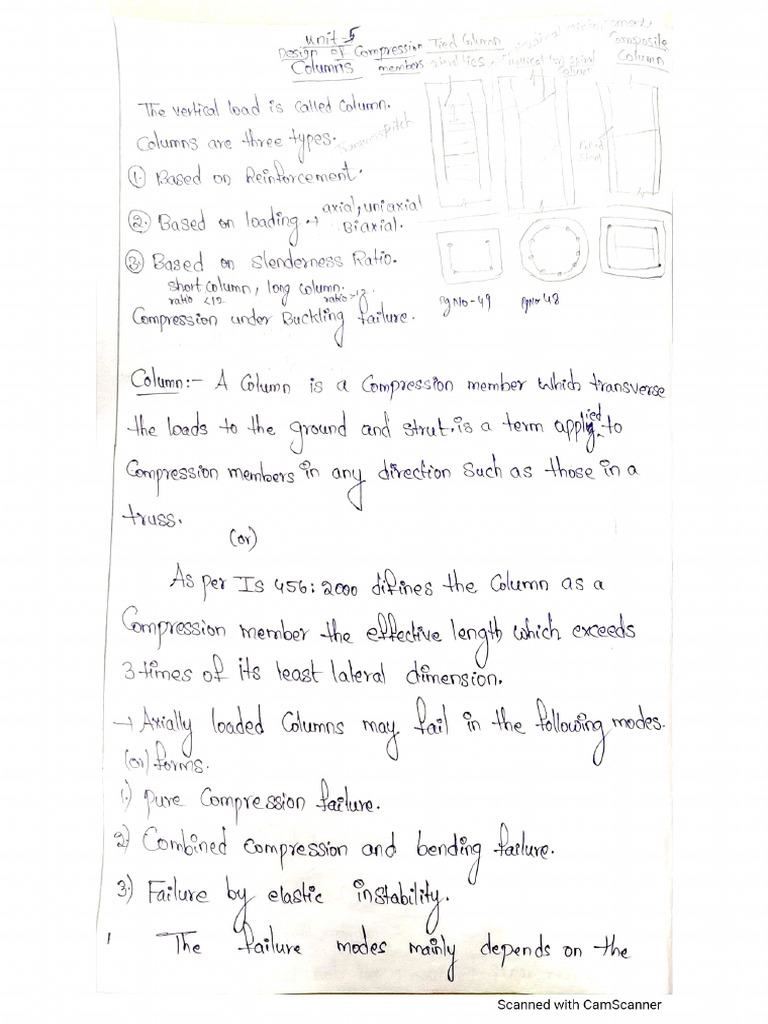 Unit-5
Design of Compression members
Columns
Tied Column
Composite
Column
The vertical load is called Column.
Columns are three types.
Pitch
① Based on Reinforcement.
② Based on loading → axial, uniaxial
Biaxial.
③ Based on Slenderness Ratio.
short column, long column.
ratio <12 ratio >12
Compression under Buckling failure.
Pg No-49 Pg No-48
Column:- A Column is a Compression member which transverse
the loads to the ground and strut is a term applied to
Compression members in any direction Such as those in a
truss.
(or)
As per IS 456:2000 difines the Column as a
Compression member the effective length which exceeds
3-times of its least lateral dimension.
→ Axially loaded Columns may fail in the following modes.
(or) forms.
1) Pure Compression failure.
2) Combined compression and bending failure.
3) Failure by elastic instability.
The failure modes mainly depends on the
Scanned with CamScanner